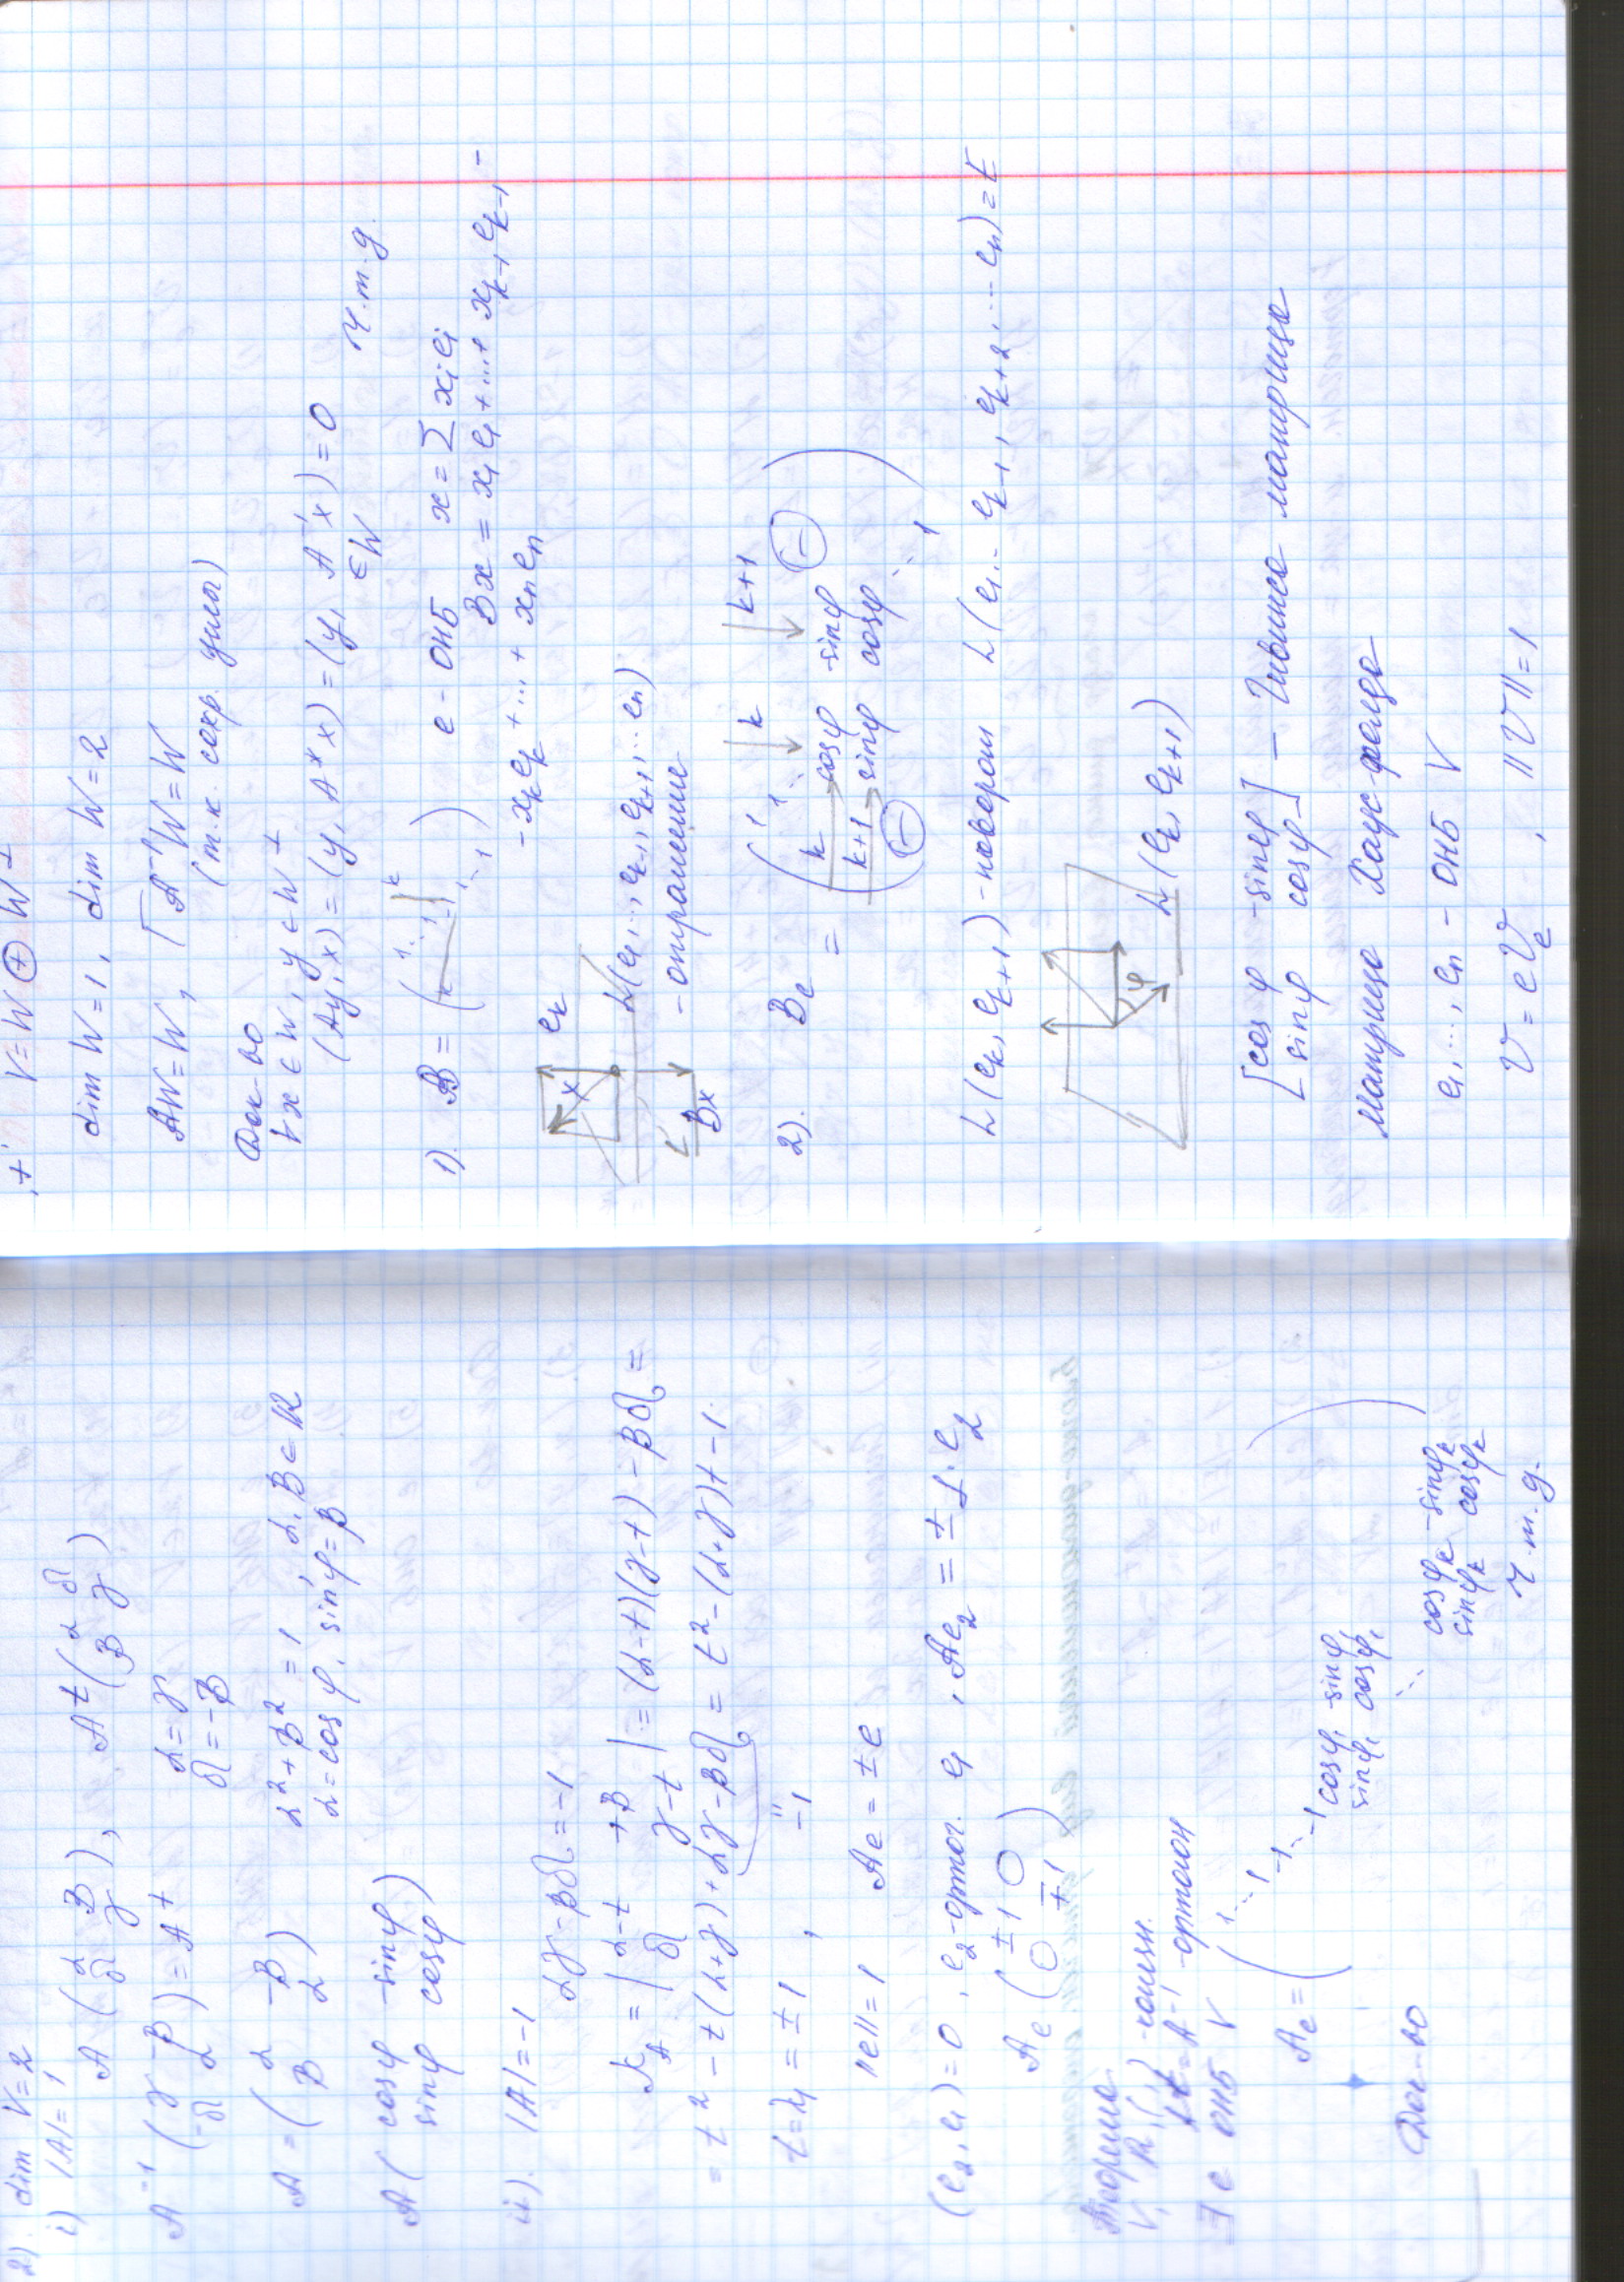 2). dim V=2
i) |A|=1
A (α β
δ γ), A^t (α δ
β γ)
A^{-1} (γ -β
-δ α) = A^t
α=γ
δ=-β
A = (α -β
β α)
α²+β²=1, α,β∈ℝ
α=cosφ, sinφ=β
A (cosφ -sinφ
sinφ cosφ)
ii). |A|=-1
αγ-βδ=-1
K_A = |α-t +β
δ γ-t| = (α-t)(γ-t)-βδ =
= t²-t(α+γ)+αγ-βδ = t²-(α+γ)t-1
t=λ₁=±1, -1
||e||=1 Ae=±e
(e₂,e₁)=0, e₂-ортог. e₁, Ae₂=±1·e₂
A_e (±1 0
0 ∓1)
Теорема
A^{-1} - ортогон
∃ e ОНБ V
A_e = (1 ⋱ 1 -1 ⋱ -1
cosφ₁ -sinφ₁
sinφ₁ cosφ₁
⋱
cosφ_k -sinφ_k
sinφ_k cosφ_k)
Док-во
ч.т.д.
V=W⊕W^⊥
dim W=1, dim W=2
AW=W, ⌈A^{-1}W=W
(т.к. сохр. углы)
Док-во
∀x∈W, y∈W^⊥
(Ay,x)=(y,A*x)=(y, A^{-1}x)=0
∈W
ч.т.д.
1). B = (1 ⋱ -1 ⋱ 1) k k e-ОНБ x=∑x_ie_i
Bx = x₁e₁+...+x_{k-1}e_{k-1} -
-x_ke_k+...+x_ne_n
x e_k
L(e₁,...,e_{k-1},e_{k+1}...e_n)
Bx - отражение
2). B_e = (1 ⋱ 1
k cosφ -sinφ
k+1 sinφ cosφ
⋱ 1) k k+1 ⊖ ⊖
L(e_k,e_{k+1}) - поворот L(e₁...e_{k-1},e_{k+2},...e_n)=E
φ L(e_k,e_{k+1})
[cosφ -sinφ
sinφ cosφ] - Гивинса матрица
Матрица Хаус-фолда
e₁,...,e_n - ОНБ V
v=ev_e, ||v||=1